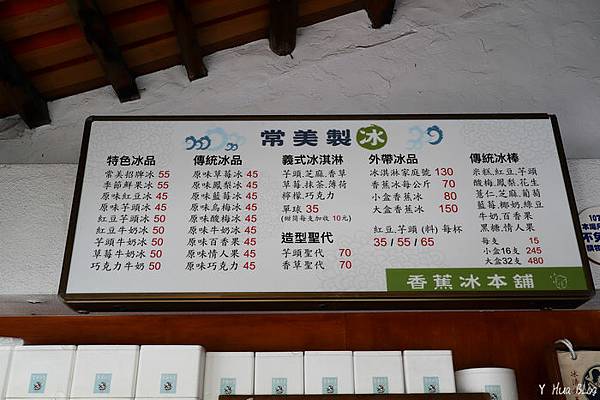 常美製冰
特色冰品
常美招牌冰 55
季節鮮果冰 55
原味紅豆冰 45
原味芋頭冰 45
紅豆芋頭冰 50
紅豆牛奶冰 50
芋頭牛奶冰 50
草莓牛奶冰 50
巧克力牛奶 50
傳統冰品
原味草莓冰 45
原味鳳梨冰 45
原味藍莓冰 45
原味烏梅冰 45
原味酸梅冰 45
原味牛奶冰 45
原味百香果 45
原味情人果 45
原味巧克力 45
義式冰淇淋
芋頭.芝麻.香草
草莓.抹茶.薄荷
檸檬.巧克力
單球 35
(甜筒每支加收 10元)
造型聖代
芋頭聖代 70
香草聖代 70
外帶冰品
冰淇淋家庭號 130
香蕉冰每公斤 70
小盒香蕉冰 80
大盒香蕉冰 150
紅豆.芋頭 (料) 每杯
35 / 55 / 65
傳統冰棒
米糕.紅豆.芋頭
酸梅.鳳梨.花生
薏仁.芝麻.葡萄
藍莓.椰奶.綠豆
牛奶.百香果
黑糖.情人果
每支 15
小盒16支 245
大盒32支 480
香蕉冰本舖
Y Hua BLog